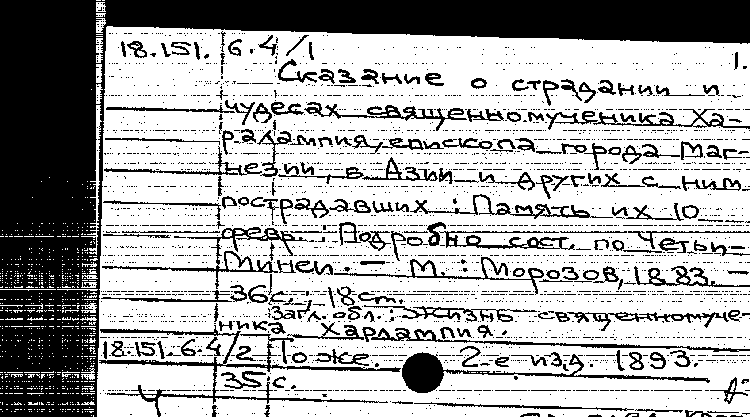 18.151. 6.4/1 1.
Сказание о страдании и
чудесах священномученика Ха-
ралампия, епископа города Маг-
незии, в Азии и других с ним
пострадавших : Память их 10
февр. : Подробно сост. по Четьи-
Минеи. — М. : Морозов, 1883. —
36 с. ; 18 см.
Загл. обл. : Жизнь священномуче-
ника Харлампия.
18.151.6.4/2 То же. 2-е изд. 1893.
35 с.